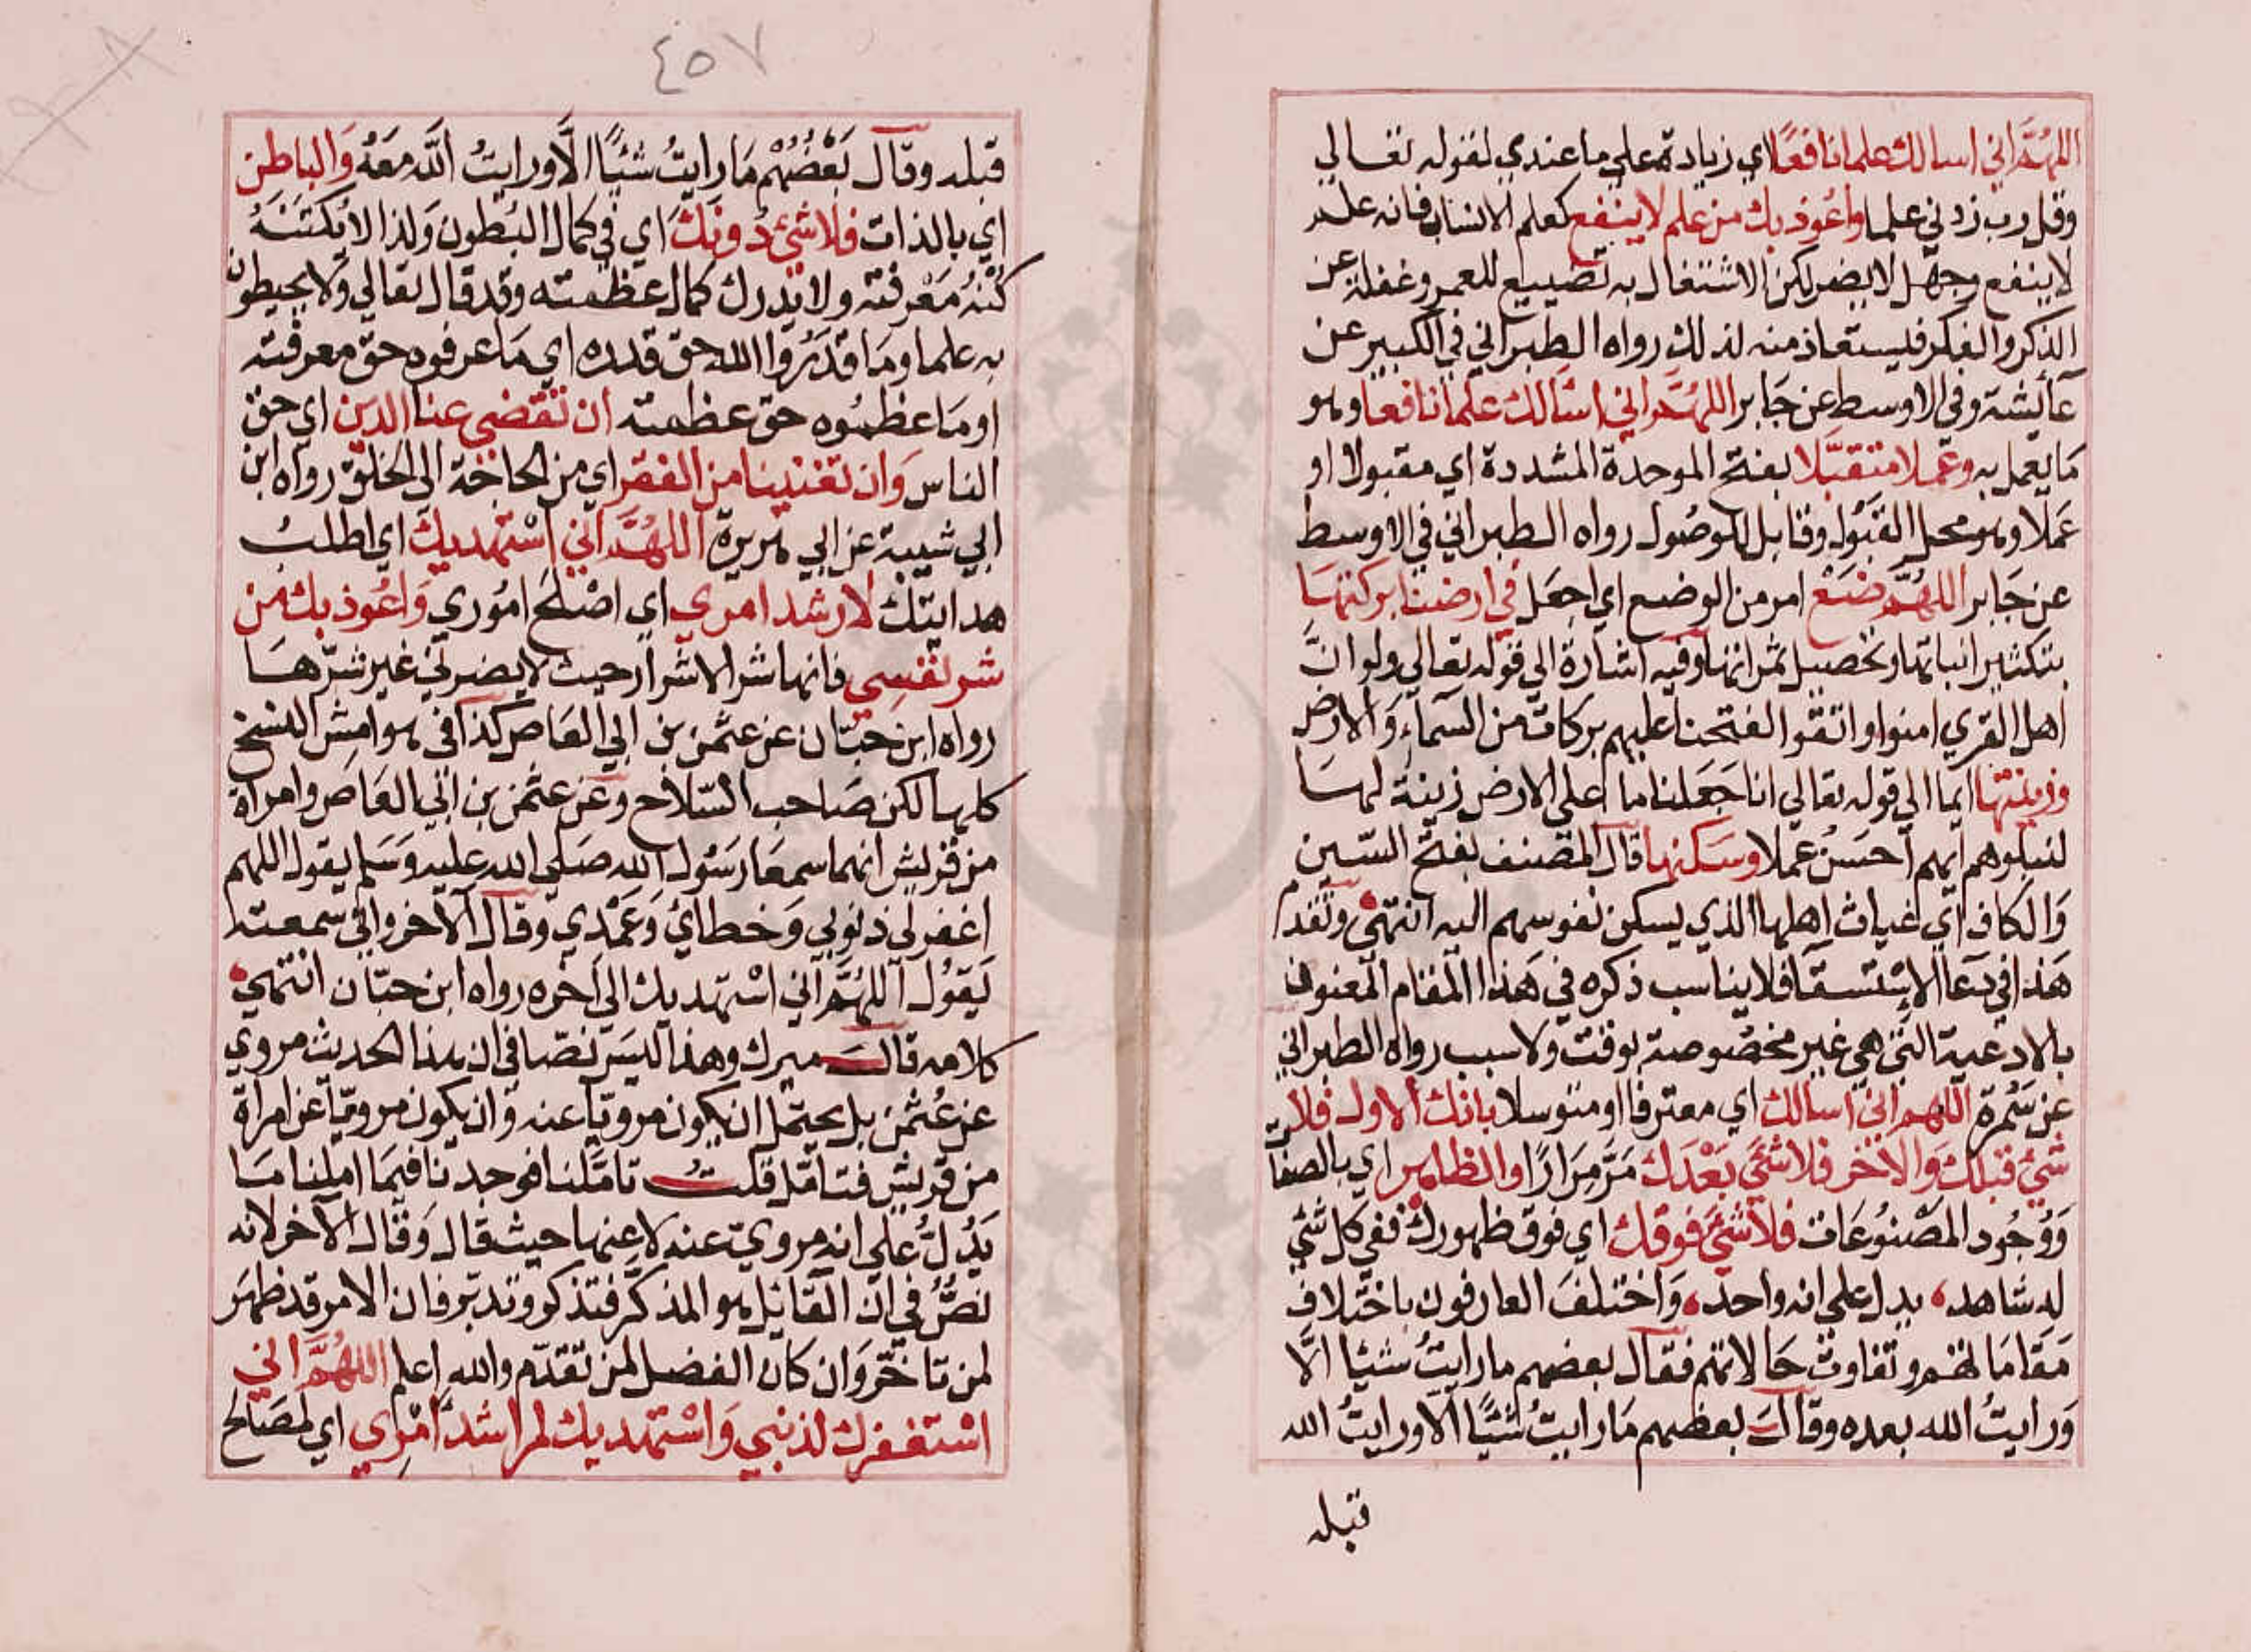 اللهم اني اسالك علما نافعا اي زيادة علي ما عندي لقوله تعالي
وقل رب زدني علما واعوذ بك من علم لا ينفع كعلم الانساب فانه علم
لا ينفع وجهل لا يضر لكن الاشتغال به تضييع للعمر وغفلة عن
الذكر والفكر فليستعاذ منه لذلك رواه الطبراني في الكبير عن
عايشة وفي الاوسط عن جَابر اللهم اني اسالك علما نافعا وهو
مَا يعمل به وعملا متقبّلا بفتح الموحدة المشددة اي مقبولا او
عَملا وهو محل القبول وقابل للوصُول رواه الطبراني في الاوسط
عن جَابر اللهُمّ ضَعْ امر من الوضع اي اجعَل في ارضنا بركتها
بتكثير انباتها وتحصيل ثمراتها وفيه اشارة الي قوله تعالي ولو انّ
اهل القري امنوا واتقوا لفتحنا عليهم بركات من السّماءِ وَالارض
وزينتها ايما الي قوله تعالي انا جَعَلنا ما علي الارض زينة لها
لنبلوهم ايهم احسَنُ عملا وسَكنها قال المصنف بفتح السّين
وَالكاف اي غياث اهلها الذي يسكن نفوسهم اليه انتهي وتقدم
هَذا في دعَا الاستسقآ فلا يناسب ذكره في هَذا المقام المعنون
بالادعية التي هي غير مخصُوصة بوقت ولا سبب رواه الطبراني
عن سَمُرة اللهم اني اسالك اي معترفا او متوسلا بانك الاول فلا
شئ قبلك وَالاخر فلا شئَ بَعْدَك مَرَّ مِرَارًا والظاهر اي بالصفات
وَوُجُود المصْنوُعَات فلا شئَ فوقك اي فوق ظهورك ففي كل شئ
له شاهد، يدل علي انه واحد، وَاختلفَ العارفون باختلاف
مَقامَاتهم وتفاوت حَالاتهم فقال بعضهم ما رايتُ شيئا الَّا
وَرايتُ الله بعده وقالَ بعضهم مَا رايتُ شيًّا الّا ورايتُ الله
قبله
٤٥٧
قبله وقال بَعْضُهُمْ مَا رايتُ شيًّا الَّا ورايتُ اللّه مَعَهُ وَالباطن
اي بالذات فلا شئ دُونَك اي في كمال البُطون وَلذا لا يُكتَنَهُ
كُنْهُ مَعْرفته ولا يدرك كمال عظمته وقد قال تعالي ولا يحيطون
به علما ومَا قدَرُوا الله حق قدره اي مَا عرفوه حق معرفته
او مَا عظمُوه حق عظمته ان تقضي عنا الدين اي حق
الناس وَان تغنينا من الفقر اي من الحاجة الي الخلق رواه ابن
ابي شيبة عن ابي هريرة اللهُمَّ اني اسْتهديك اي اطلبُ
هدايتك لارشد امري اي اصْلحَ امُوري وَاعُوذ بك من
شر نفسي فانها شر الاشرار حيث لا يضرني غير شرّها
رواه ابن حبّان عن عثمٰن بن ابي العَاص كذا في هوامش النسخ
كلها لكن صَاحب السّلاح وعَن عثمٰن بن ابي العَاص وامراة
من قريش انهما سمعَا رَسُول الله صَلي الله عليه وَسَلم يقول اللهم
اغفر لي ذنوبي وَخطاي وَعَمْدي وقال الآخر واني سمعته
يَقوُل اللهُمَّ اني اسْتهديك الي اخره رواه ابن حبّان انتهي
كلامه قالَ ميرك وهذا ليسَ نصّا في ان هذا الحديث مروي
عن عُثمٰن بل يحتمل ان يكون مرويّا عنه وَان يكون مرويّا عن امراة
من قريش فتامّل قلتُ تامّلنا فوجدنا فيمَا املنا مَا
يَدُلّ علي انه مروي عنه لا عنها حيث قال وَقال الآخر لانه
نصٌّ في انّ القائل هو المذكّر فتذكر وتدبّر فان الامر قد ظهَر
لمن تاخّر وَان كان الفضل لمن تقدّم والله اعلم اللهُمَّ اني
اسْتغفرك لذنبي وَاسْتهديك لمراشد امْري اي لمصَالح